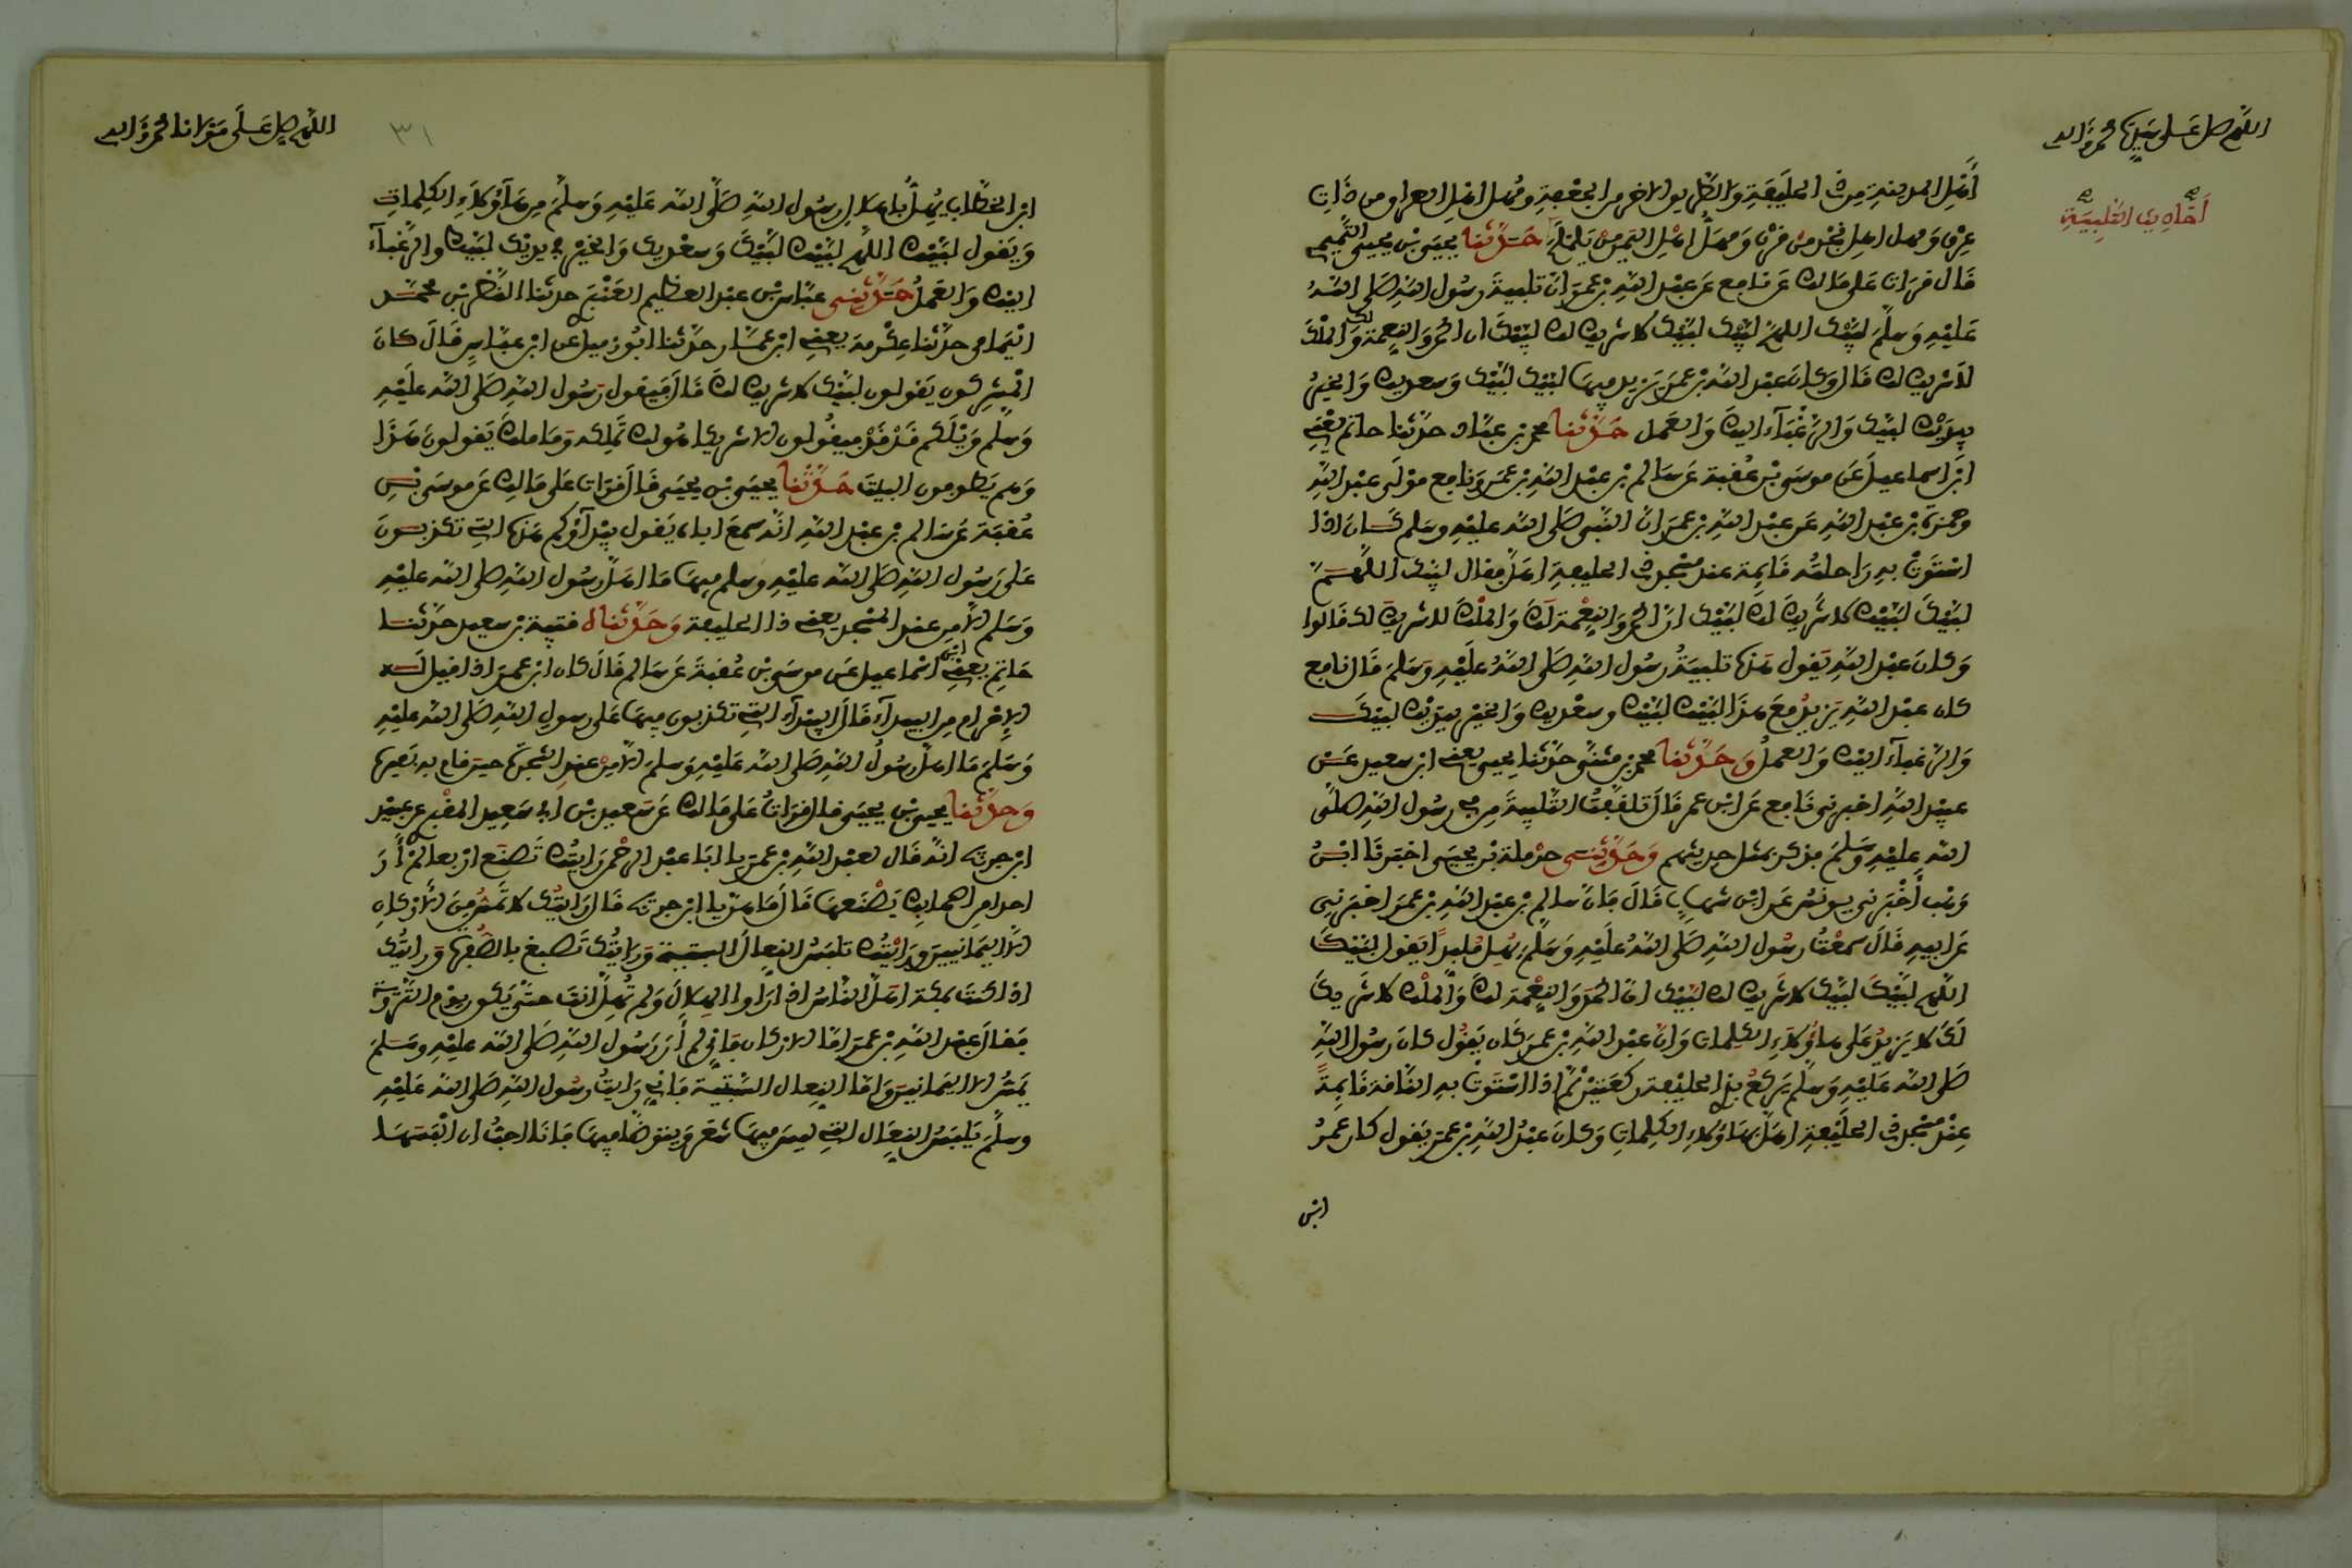 اللهم صل على سيدنا محمد وآله
أحاديث التلبية
أهل المدينة من ذي الحليفة والطريق الاخر من الجحفة ومهل اهل العراق من ذات
عرق ومهل اهل نجد من قرن ومهل اهل اليمن من يلملم حدثنا يحيى بن يحيى التميمي
قال قرات على مالك عن نافع عن عبد الله بن عمر ان تلبية رسول الله صلى الله
عليه وسلم لبيك اللهم لبيك لبيك لا شريك لك لبيك ان الحمد والنعمة لك والملك
لا شريك لك قال وكان عبد الله بن عمر يزيد فيها لبيك لبيك وسعديك والخير
بيديك لبيك والرغباء اليك والعمل حدثنا محمد بن عباد حدثنا حاتم يعني
ابن اسماعيل عن موسى بن عقبة عن سالم بن عبد الله بن عمر ونافع مولى عبد الله
وحمزة بن عبد الله عن عبد الله بن عمر ان النبي صلى الله عليه وسلم كان اذا
استوت به راحلته قايمة عند مسجد ذي الحليفة اهل فقال لبيك اللهم
لبيك لبيك لا شريك لك لبيك ان الحمد والنعمة لك والملك لا شريك لك قالوا
وكان عبد الله يقول هذه تلبية رسول الله صلى الله عليه وسلم قال نافع
كان عبد الله يزيد مع هذا لبيك لبيك وسعديك والخير بيديك لبيك
والرغباء اليك والعمل وحدثنا محمد بن مثنى حدثنا يحيى يعني ابن سعيد عن
عبيد الله اخبرني نافع عن ابن عمر قال تلقفت التلبية من في رسول الله صلى
الله عليه وسلم فذكر بمثل حديثهم وحدثني حرملة بن يحيى اخبرنا ابن
وهب أخبرني يونس عن ابن شهاب قال فان سالم بن عبد الله بن عمر اخبرني
عن ابيه قال سمعت رسول الله صلى الله عليه وسلم يهل ملبدا يقول لبيك
اللهم لبيك لبيك لا شريك لك لبيك ان الحمد والنعمة لك والملك لا شريك
لك لا يزيد على هاؤلاء الكلمات وان عبد الله بن عمر كان يقول كان رسول الله
صلى الله عليه وسلم يركع بذي الحليفة ركعتين ثم اذا استوت به الناقة قايمة
عند مسجد ذي الحليفة اهل بهاؤلاء الكلمات وكان عبد الله بن عمر يقول كان عمر
ابن
اللهم صل على مولانا محمد وآله
٣١
ابن الخطاب يهل باهلال رسول الله صلى الله عليه وسلم من هاؤلاء الكلمات
ويقول لبيك اللهم لبيك لبيك وسعديك والخير في يديك لبيك والرغباء
اليك والعمل حدثني عباس بن عبد العظيم العنبري حدثنا النضر بن محمد
اليمامي حدثنا عكرمة يعني ابن عمار حدثنا ابو زميل عن ابن عباس قال كان
المشركون يقولون لبيك لا شريك لك قال فيقول رسول الله صلى الله عليه
وسلم ويلكم قد قد فيقولون الا شريكا هو لك تملكه وما ملك يقولون هذا
وهم يطوفون البيت حدثنا يحيى بن يحيى قال قرات على مالك عن موسى بن
عقبة عن سالم بن عبد الله انه سمع اباه يقول بيداؤكم هذه التي تكذبون
على رسول الله صلى الله عليه وسلم فيها ما اهل رسول الله صلى الله عليه
وسلم الا من عند المسجد يعني ذا الحليفة وحدثناه قتيبة بن سعيد حدثنا
حاتم يعني ابن اسماعيل عن موسى بن عقبة عن سالم قال كان ابن عمر اذا قيل له
الإحرام من البيداء قال البيداء التي تكذبون فيها على رسول الله صلى الله عليه
وسلم ما اهل رسول الله صلى الله عليه وسلم الا من عند الشجرة حين قام به بعيره
وحدثنا يحيى بن يحيى قال قرات على مالك عن سعيد بن ابي سعيد المقبري عن عبيد
ابن جريج انه قال لعبد الله بن عمر يا ابا عبد الرحمن رايتك تصنع اربعا لم أر
احدا من اصحابك يصنعها قال ما هن يا ابن جريج قال رايتك لا تمس من الاركان
الا اليمانيين ورايتك تلبس النعال السبتية ورايتك تصبغ بالصفرة ورايتك
اذا كنت بمكة اهل الناس اذا راوا الهلال ولم تهل انت حتى يكون يوم التروية
فقال عبد الله بن عمر اما الاركان فاني لم أر رسول الله صلى الله عليه وسلم
يمس الا اليمانيين واما النعال السبتية فاني رايت رسول الله صلى الله عليه
وسلم يلبس النعال التي ليس فيها شعر ويتوضأ فيها فانا احب ان البسها